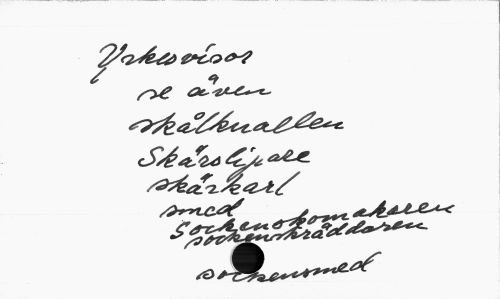 Yrkesvisor
se även
skålknallen
Skärslipare
skärkarl
smed
Sockenskomakaren
sockenskräddaren
sockensmed